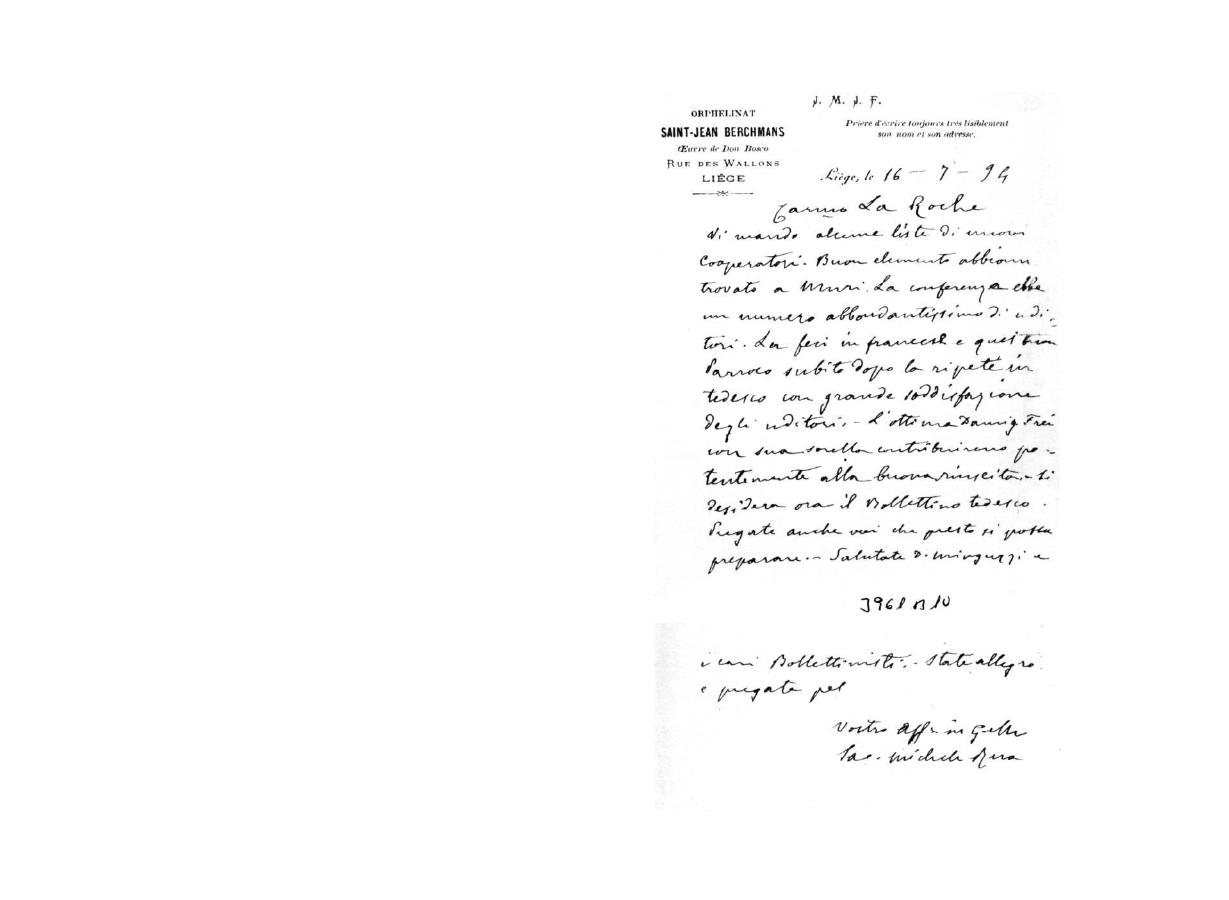 J. M. J. F.
ORPHELINAT
SAINT-JEAN BERCHMANS
Œuvre de Don Bosco
RUE DES WALLONS
LIÈGE
Prière d'écrire toujours très lisiblement
son nom et son adresse.
Liège, le 16 - 7 - 94
Carmo La Roche
Vi mando alcune liste di nuovi
Cooperatori. Buon elemento abbiam
trovato a Muri. La conferenza ebbe
un numero abbondantissimo di udi-
tori. La feci in francese e quel buon
Parroco subito dopo la ripetè in
tedesco con grande soddisfazione
degli uditori. - L'ottima Damig. Frei
con sua sorella contribuirono po-
tentemente alla buona riuscita. - Si
desidera ora il Bollettino tedesco.
Pregate anche voi che presto si possa
preparare. - Salutate D. Minguzzi e
3961 B 10
i cari Bollettinisti. - State allegro
e pregate pel
Vostro aff. in G.
Sac. Michele Rua